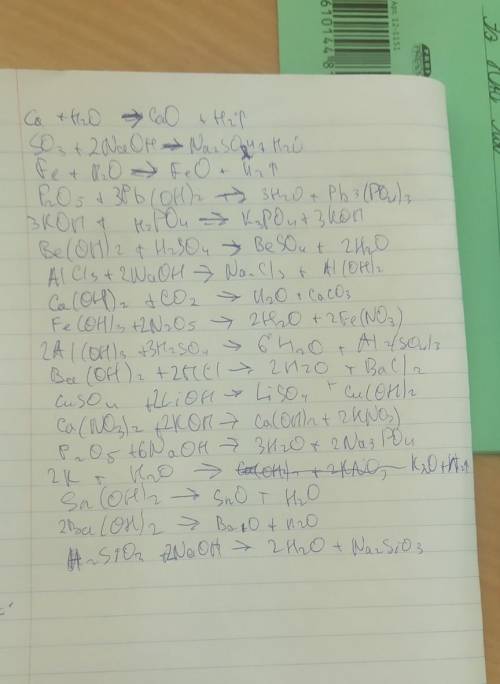 Ca + H2O → CaO + H2↑
SO3 + 2NaOH → Na2SO4 + H2O
Fe + H2O → FeO + H2↑
P2O5 + 3Pb(OH)2 → 3H2O + Pb3(PO4)2
3KOH + H3PO4 → K3PO4 + 3KOH
Be(OH)2 + H2SO4 → BeSO4 + 2H2O
AlCl3 + 2NaOH → Na2Cl3 + Al(OH)2
Ca(OH)2 + CO2 → H2O + CaCO3
Fe(OH)3 + 2N2O5 → 2H2O + 2Fe(NO3)
2Al(OH)3 + 3H2SO4 → 6H2O + Al2(SO4)3
Ba(OH)2 + 2HCl → 2H2O + BaCl2
CuSO4 + 2LiOH → LiSO4 + Cu(OH)2
Ca(NO3)2 + 2KOH → Ca(OH)2 + 2KNO3
P2O5 + 6NaOH → 3H2O + 2Na3PO4
2K + H2O → K2O + H2↑
Sn(OH)2 → SnO + H2O
2Ba(OH)2 → BaO + H2O
H2SiO3 + 2NaOH → 2H2O + Na2SiO3